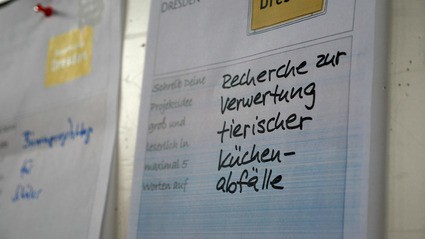 DRESDEN
Dresden
Schreib Deine
Projektidee
groß und
leserlich in
maximal 5
Worten auf
Recherche zur
Verwertung
tierischer
Küchen-
abfälle
Dresden
für